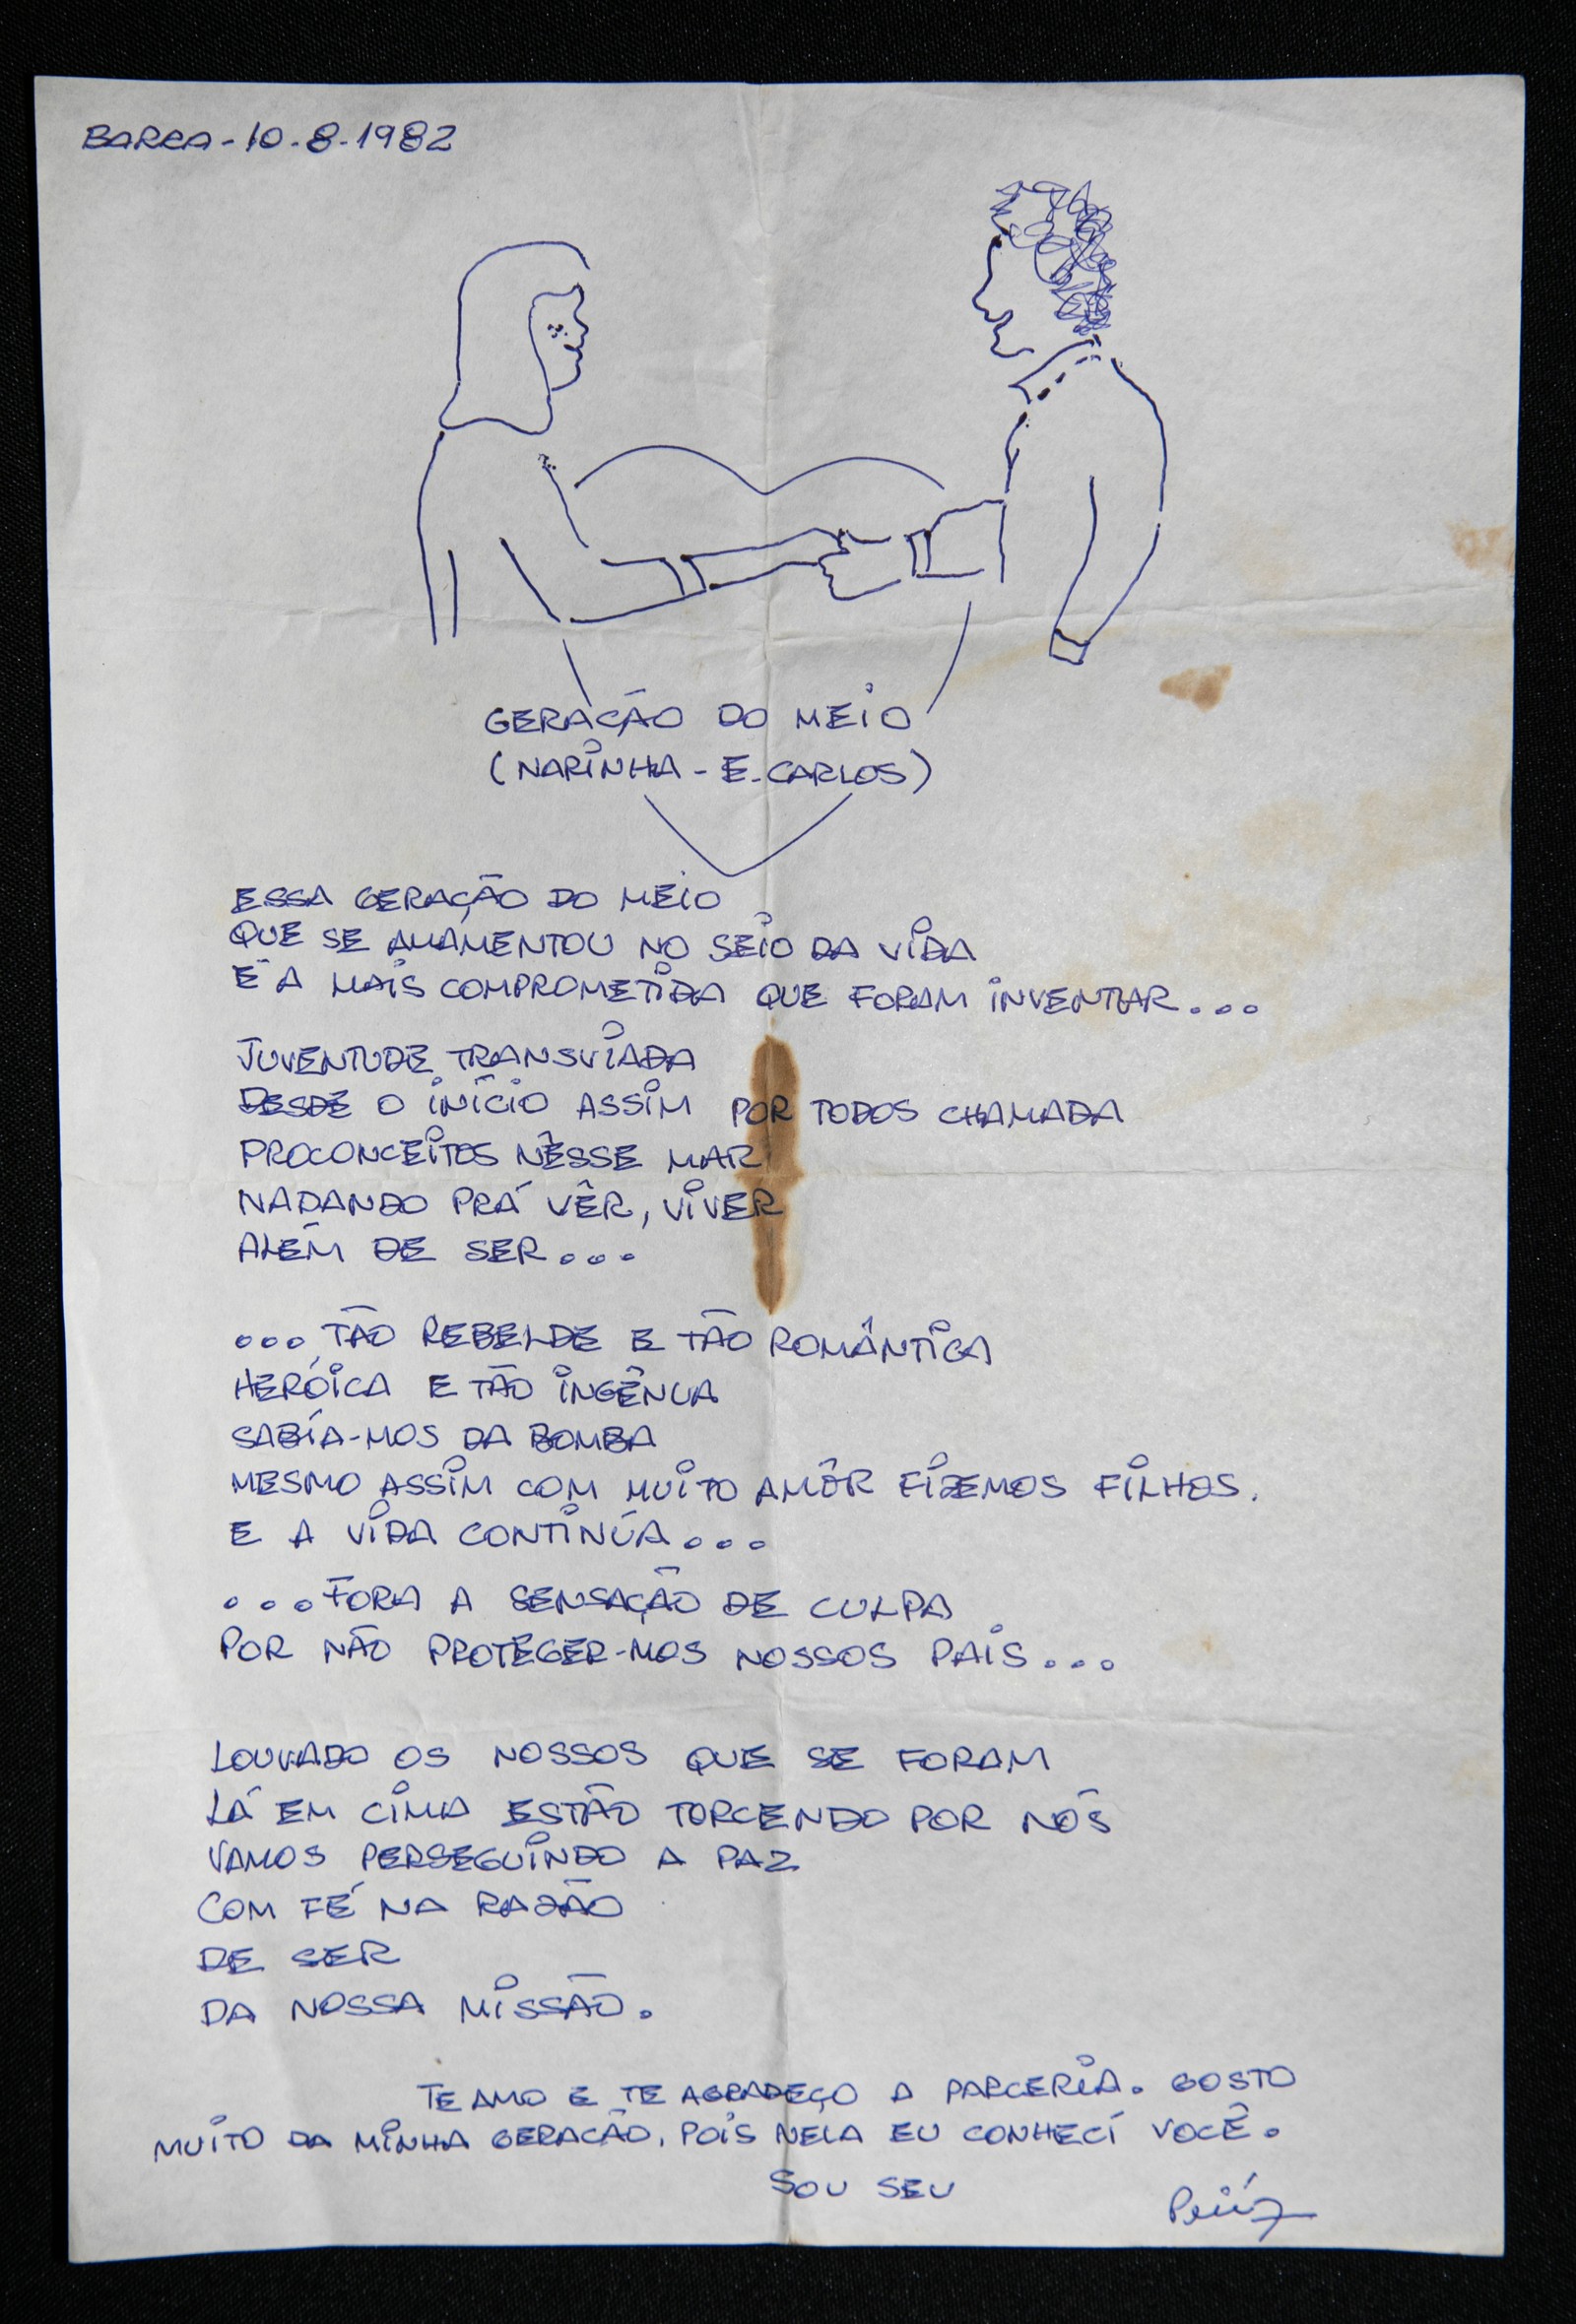 BARRA - 10.8.1982
GERAÇÃO DO MEIO
(NARINHA - E. CARLOS)
ESSA GERAÇÃO DO MEIO
QUE SE AMAMENTOU NO SEIO DA VIDA
É A MAIS COMPROMETIDA QUE FORAM INVENTAR...
JUVENTUDE TRANSVIADA
DESDE O INÍCIO ASSIM POR TODOS CHAMADA
PROCONCEITOS NÊSSE MAR
NADANDO PRÁ VÊR, VIVER
ALÉM DE SER...
...TÃO REBELDE E TÃO ROMÂNTICA
HERÓICA E TÃO INGÊNUA
SABÍA-MOS DA BOMBA
MESMO ASSIM COM MUITO AMÔR FIZEMOS FILHOS.
E A VIDA CONTINÚA...
...FORA A SENSAÇÃO DE CULPA
POR NÃO PROTEGER-MOS NOSSOS PAIS...
LOUVADO OS NOSSOS QUE SE FORAM
LÁ EM CIMA ESTÃO TORCENDO POR NÓS
VAMOS PERSEGUINDO A PAZ
COM FÉ NA RAZÃO
DE SER
DA NOSSA MISSÃO.
TE AMO E TE AGRADEÇO A PARCERIA. GOSTO
MUITO DA MINHA GERAÇÃO, POIS NELA EU CONHECÍ VOCÊ.
SOU SEU